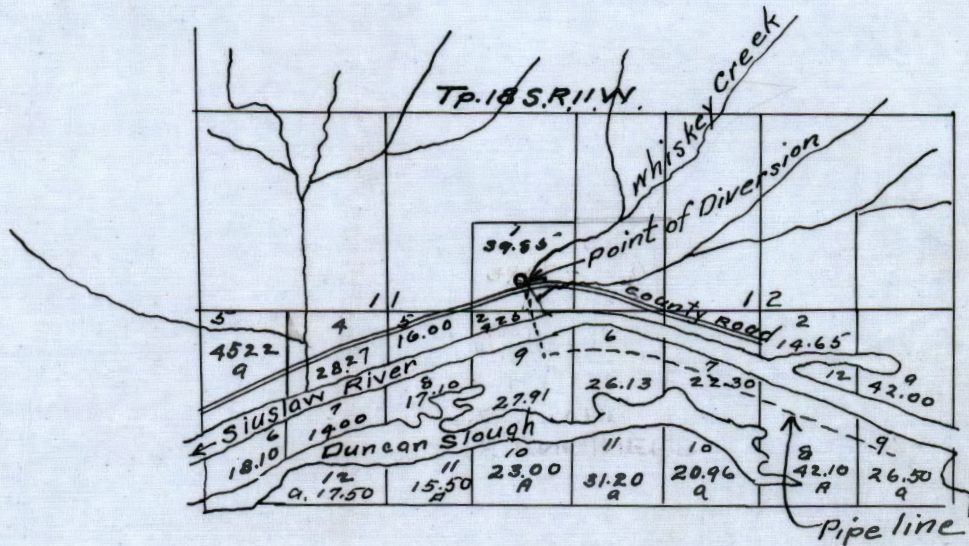 Tp. 18 S.R. 11. W.
Whiskey Creek
point of Diversion
1
39.85
11
12
County Road
5
4522
a
4
28.27
5
16.00
2
4.26
9
6
7
22.30
2
14.65
12
9
42.00
Siuslaw River
6
18.10
7
14.00
8
17.10
27.91
26.13
Duncan Slough
12
a. 17.50
11
15.50
A
10
23.00
A
11
31.20
a
10
20.96
a
8
42.10
A
9
26.50
a
Pipe line